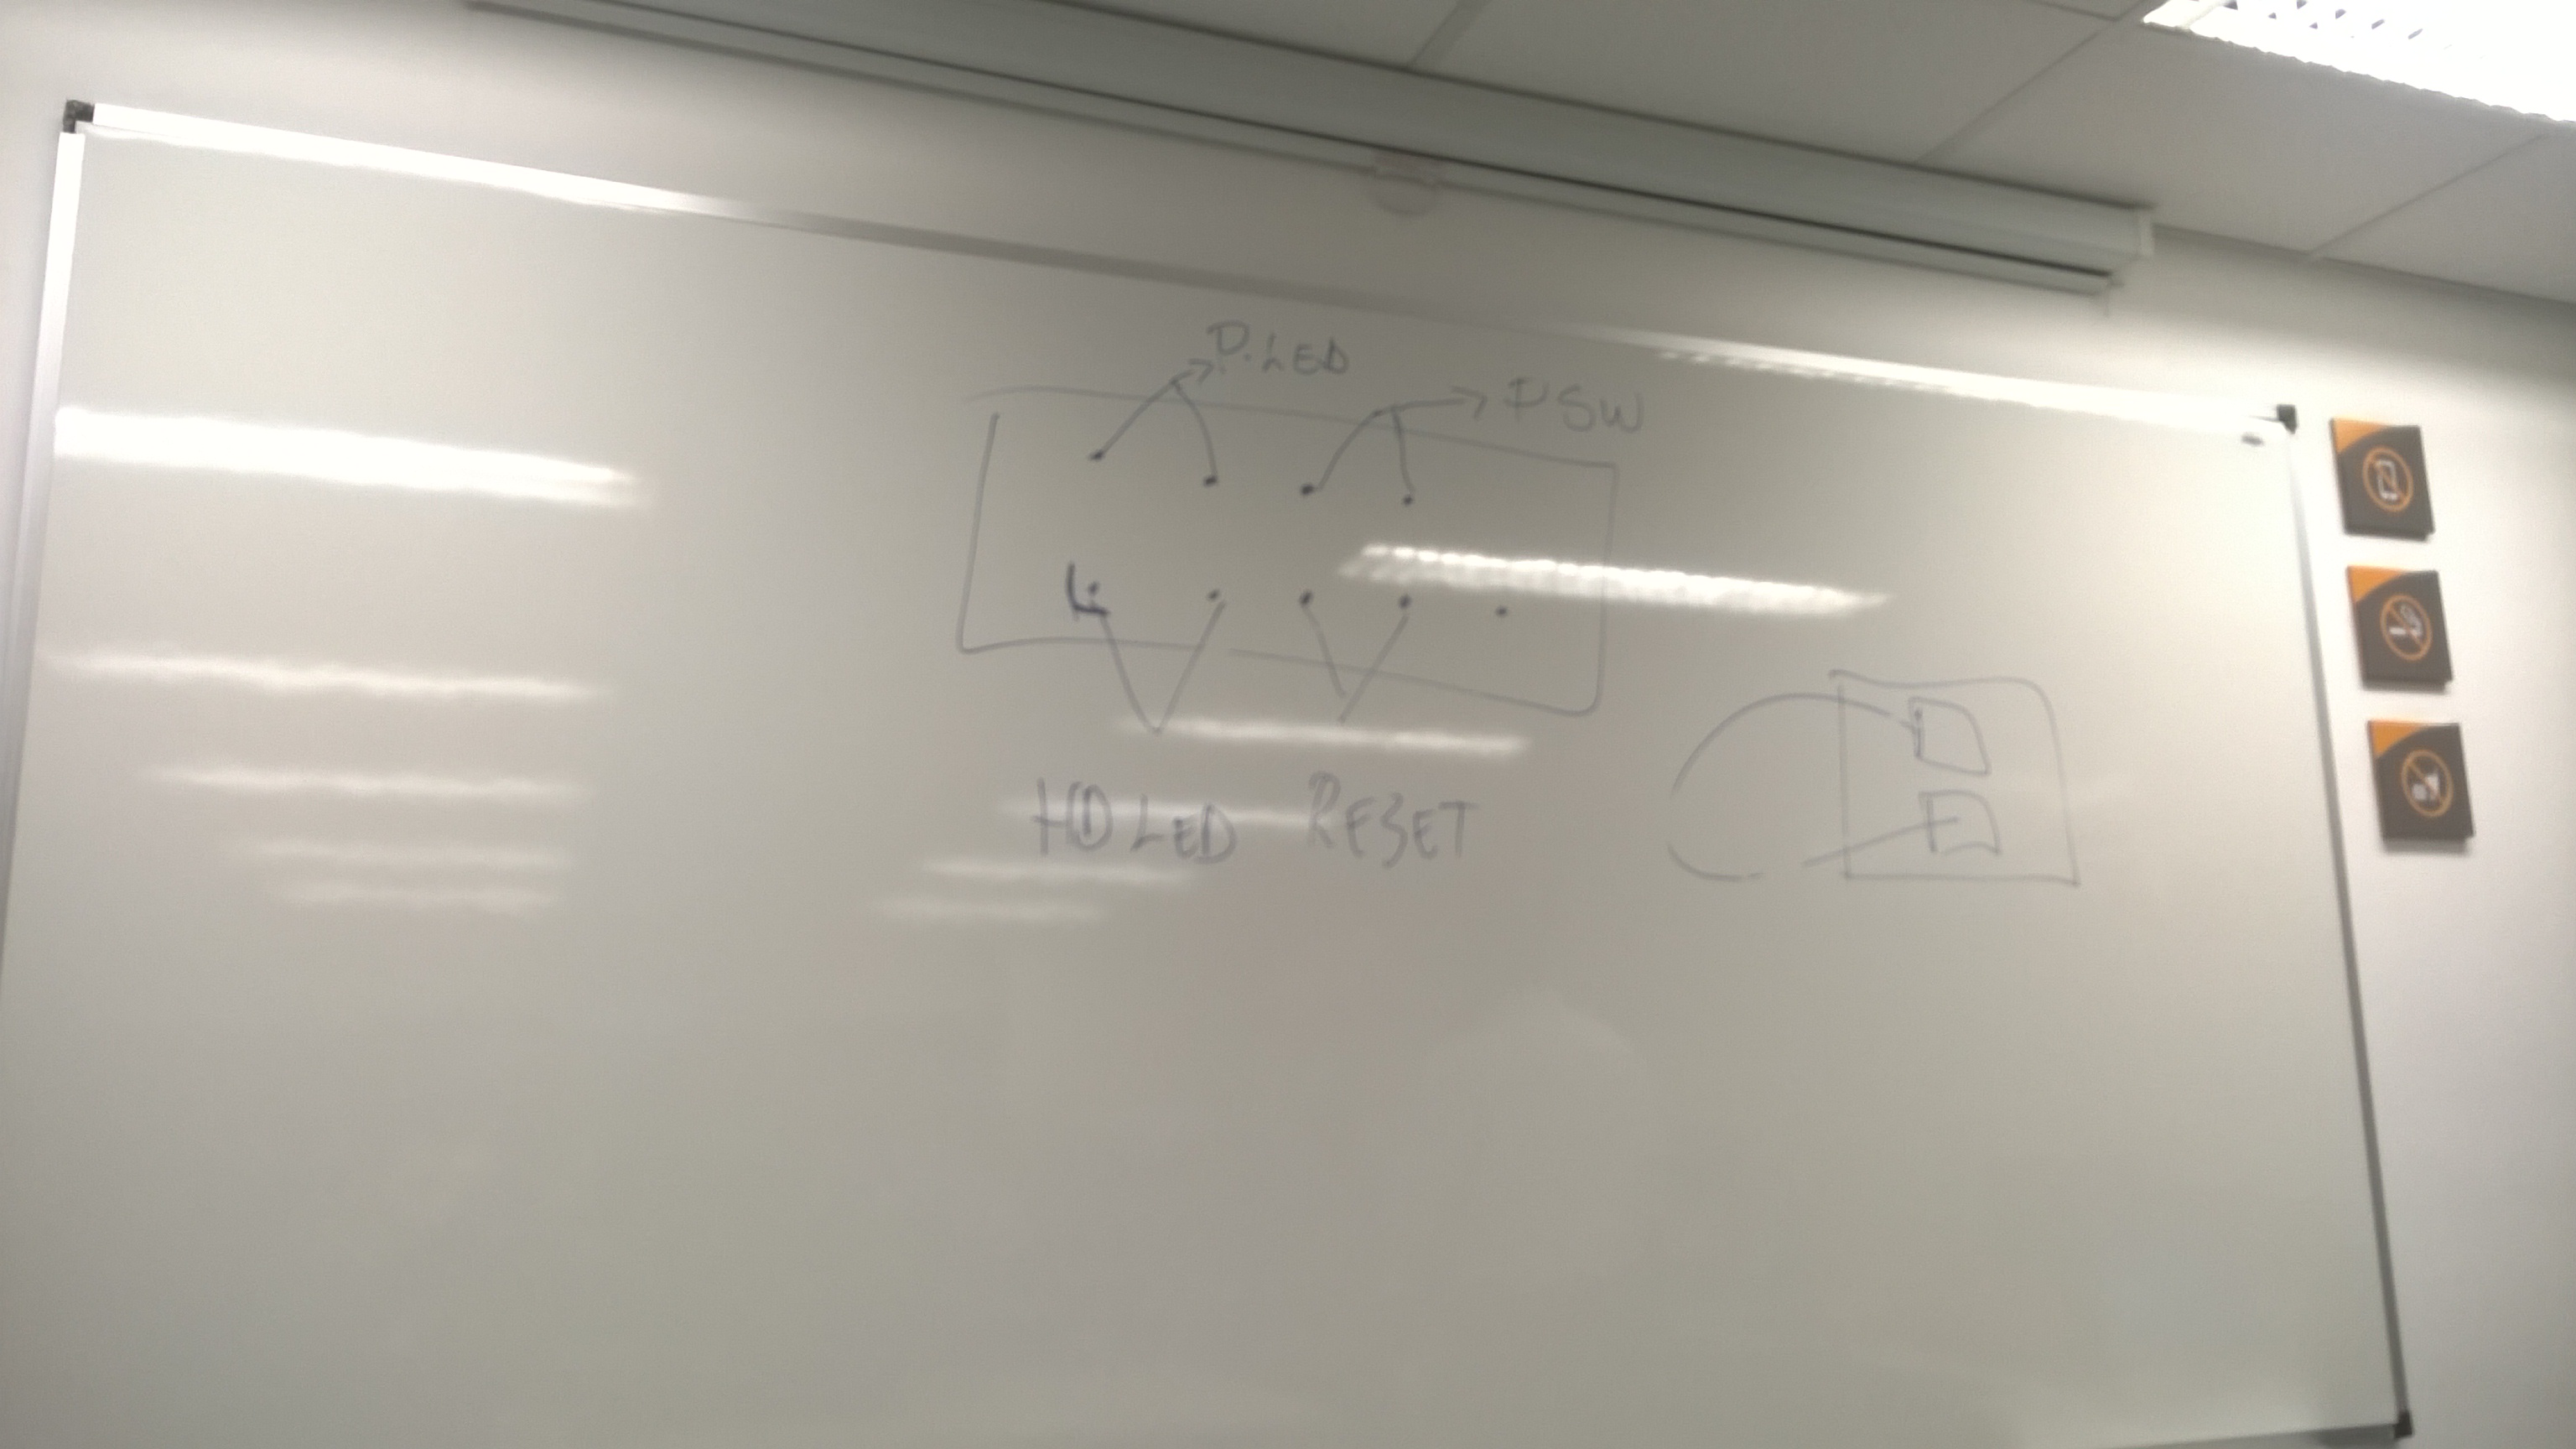 P.LED
P SW
HD LED RESET